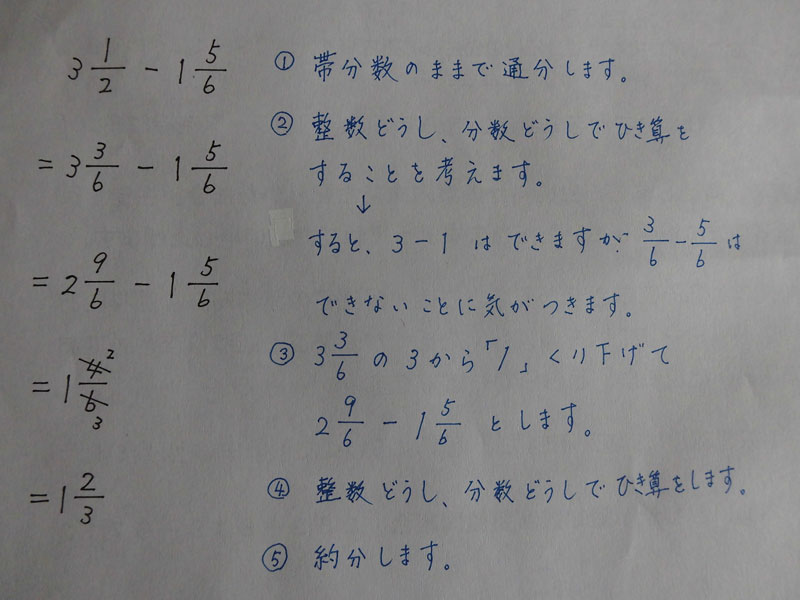 3 1/2 - 1 5/6
= 3 3/6 - 1 5/6
= 2 9/6 - 1 5/6
= 1 4/6 2 3
= 1 2/3
① 帯分数のままで通分します。
② 整数どうし、分数どうしでひき算を
することを考えます。
↓
すると、3-1 はできますが、3/6 - 5/6 は
できないことに気がつきます。
③ 3 3/6 の 3から「1」くり下げて
2 9/6 - 1 5/6 とします。
④ 整数どうし、分数どうしでひき算をします。
⑤ 約分します。